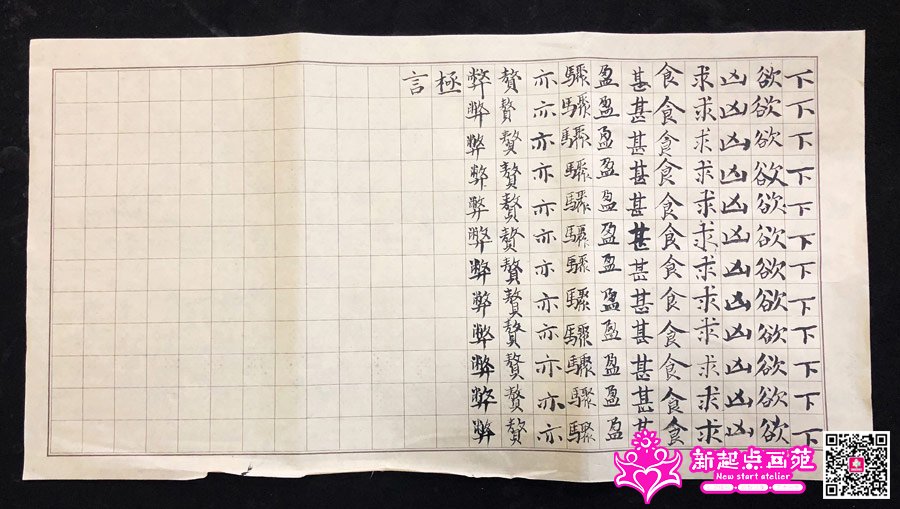 下下下下下下下下下下下下
欲欲欲欲欲欲欲欲欲欲欲欲
凶凶凶凶凶凶凶凶凶凶凶凶
求求求求求求求求求求求求
食食食食食食食食食食食食
甚甚甚甚甚甚甚甚甚甚甚甚
盈盈盈盈盈盈盈盈盈盈盈盈
驟驟驟驟驟驟驟驟驟驟驟驟
亦亦亦亦亦亦亦亦亦亦亦亦
贅贅贅贅贅贅贅贅贅贅贅贅
弊弊弊弊弊弊弊弊弊弊弊弊
極
言
新起点画苑
New start atelier